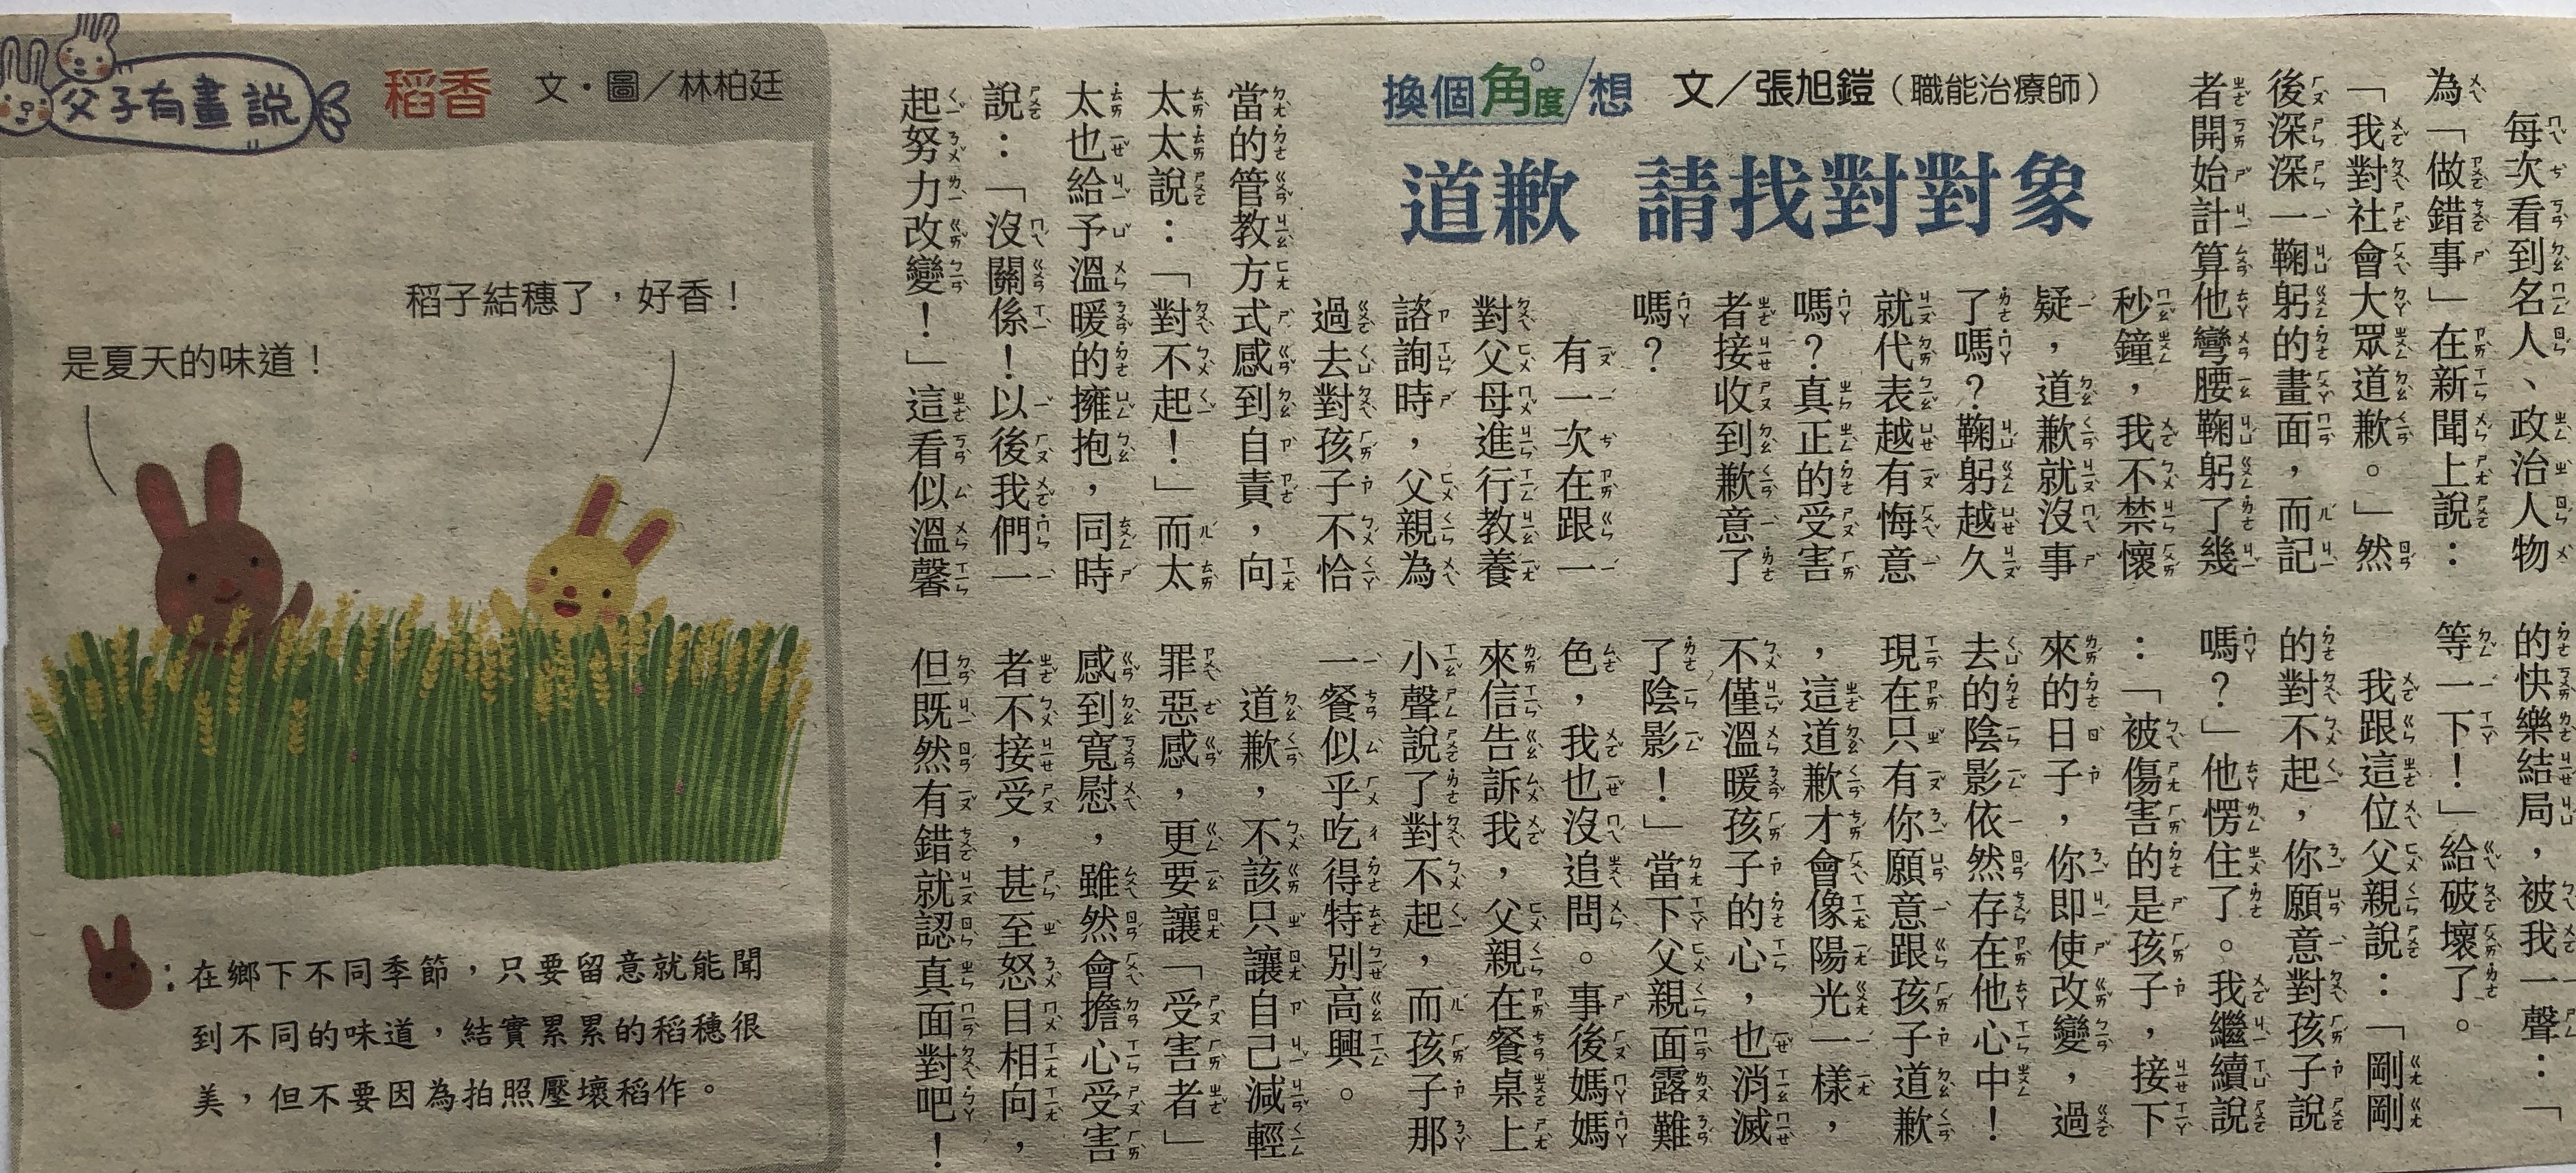 換個角度/想
文／張旭鎧（職能治療師）
道歉 請找對對象
每次看到名人、政治人物
為「做錯事」在新聞上說：
「我對社會大眾道歉。」然
後深深一鞠躬的畫面，而記
者開始計算他彎腰鞠躬了幾
秒鐘，我不禁懷
疑，道歉就沒事
了嗎？鞠躬越久
就代表越有悔意
嗎？真正的受害
者接收到歉意了
嗎？
有一次在跟一
對父母進行教養
諮詢時，父親為
過去對孩子不恰
當的管教方式感到自責，向
太太說：「對不起！」而太
太也給予溫暖的擁抱，同時
說：「沒關係！以後我們一
起努力改變！」這看似溫馨
的快樂結局，被我一聲：「
等一下！」給破壞了。
我跟這位父親說：「剛剛
的對不起，你願意對孩子說
嗎？」他愣住了。我繼續說
：「被傷害的是孩子，接下
來的日子，你即使改變，過
去的陰影依然存在他心中！
現在只有你願意跟孩子道歉
，這道歉才會像陽光一樣，
不僅溫暖孩子的心，也消滅
了陰影！」當下父親面露難
色，我也沒追問。事後媽媽
來信告訴我，父親在餐桌上
小聲說了對不起，而孩子那
一餐似乎吃得特別高興。
道歉，不該只讓自己減輕
罪惡感，更要讓「受害者」
感到寬慰，雖然會擔心受害
者不接受，甚至怒目相向，
但既然有錯就認真面對吧！
父子有畫說
稻香
文・圖／林柏廷
稻子結穗了，好香！
是夏天的味道！
：在鄉下不同季節，只要留意就能聞
到不同的味道，結實累累的稻穗很
美，但不要因為拍照壓壞稻作。